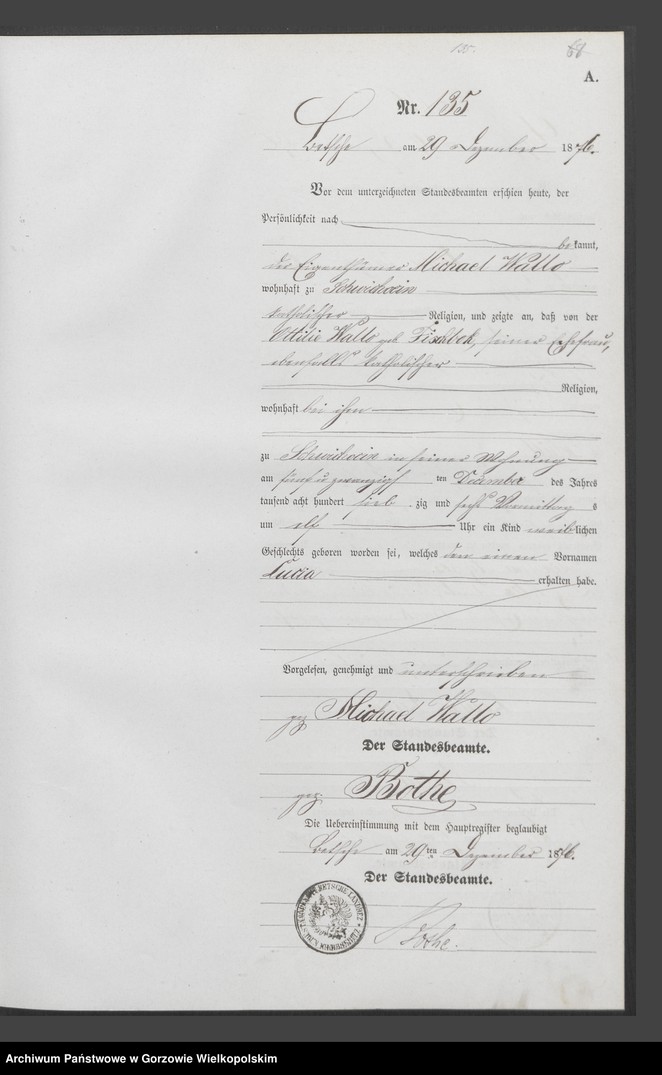 135.
68
A.
Nr. 135
Betsche am 29 Dezember 1876.
Vor dem unterzeichneten Standesbeamten erschien heute, der
Persönlichkeit nach
bekannt,
der Eigenthümer Michael Wallo
wohnhaft zu Schwichocin
katholischer Religion, und zeigte an, daß von der
Ottilie Wallo geb. Fischbok, seiner Ehefrau,
ebenfalls katholischer
Religion,
wohnhaft bei ihm
zu Schwichocin in seiner Wohnung
am fünf u zwanzigsten December des Jahres
tausend acht hundert siebzig und sechs Vormittags
um elf Uhr ein Kind weiblichen
Geschlechts geboren worden sei, welches den einen Vornamen
Lucia erhalten habe.
Vorgelesen, genehmigt und unterschrieben
gez Michael Wallo
Der Standesbeamte.
gez. Bothe
Die Uebereinstimmung mit dem Hauptregister beglaubigt
Betsche am 29ten Dezember 1876.
Der Standesbeamte.
Bothe.
Archiwum Państwowe w Gorzowie Wielkopolskim